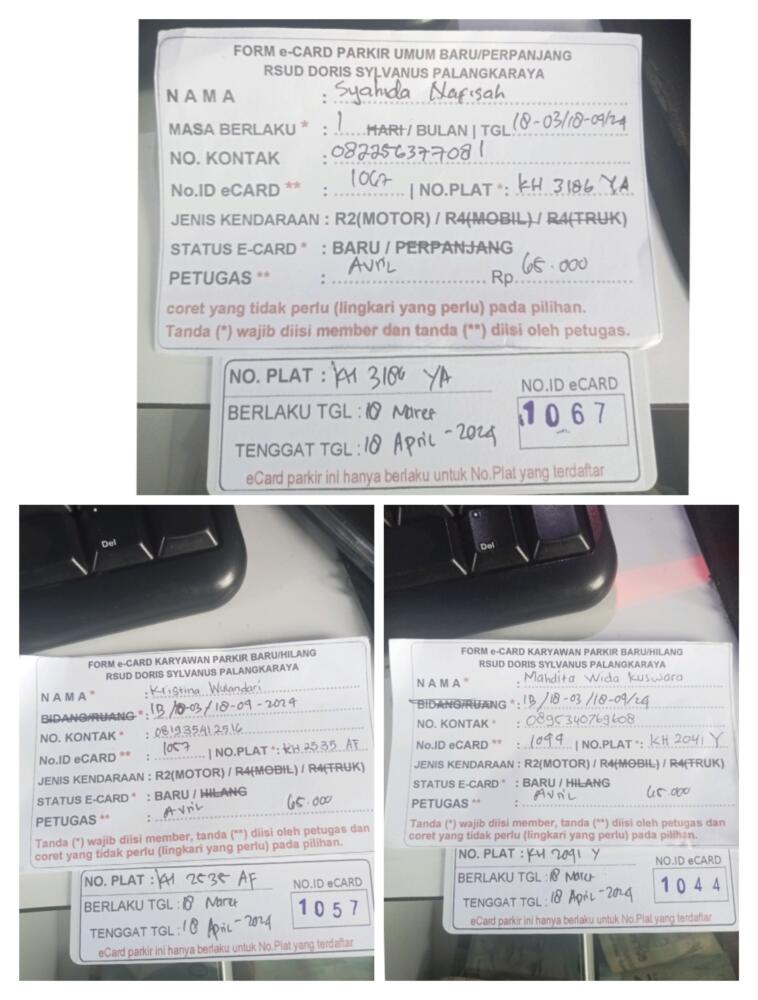 FORM e-CARD PARKIR UMUM BARU/PERPANJANG
RSUD DORIS SYLVANUS PALANGKARAYA
NAMA : Syahida Nafisah
MASA BERLAKU * : 1 HARI / BULAN | TGL 18-03/18-04/24
NO. KONTAK : 082256377081
No.ID eCARD ** : 1067 | NO.PLAT *: KH 3186 YA
JENIS KENDARAAN : R2(MOTOR) / R4(MOBIL) / R4(TRUK)
STATUS E-CARD * : BARU / PERPANJANG
PETUGAS ** : Avril Rp. 65.000
coret yang tidak perlu (lingkari yang perlu) pada pilihan.
Tanda (*) wajib diisi member dan tanda (**) diisi oleh petugas.
NO. PLAT : KH 3186 YA
NO.ID eCARD
BERLAKU TGL : 18 Maret
1067
TENGGAT TGL : 18 April - 2024
eCard parkir ini hanya berlaku untuk No.Plat yang terdaftar
Del
FORM e-CARD KARYAWAN PARKIR BARU/HILANG
RSUD DORIS SYLVANUS PALANGKARAYA
NAMA * : Kristina Wulandari
BIDANG/RUANG * : 1B / 18-03 / 18-04 - 2024
NO. KONTAK * : 081935412516
No.ID eCARD ** : 1057 | NO.PLAT *: KH 2535 AF
JENIS KENDARAAN : R2(MOTOR) / R4(MOBIL) / R4(TRUK)
STATUS E-CARD * : BARU / HILANG
PETUGAS ** : Avril 65.000
Tanda (*) wajib diisi member, tanda (**) diisi oleh petugas dan
coret yang tidak perlu (lingkari yang perlu) pada pilihan.
NO. PLAT : KH 2535 AF
NO.ID eCARD
BERLAKU TGL : 18 Maret
1057
TENGGAT TGL : 18 April - 2024
eCard parkir ini hanya berlaku untuk No.Plat yang terdaftar
Del
FORM e-CARD KARYAWAN PARKIR BARU/HILANG
RSUD DORIS SYLVANUS PALANGKARAYA
NAMA * : Mahdita Wida Kuswara
BIDANG/RUANG * : 1B / 18-03 / 18-04/24
NO. KONTAK * : 0895340769608
No.ID eCARD ** : 1044 | NO.PLAT *: KH 2041 Y
JENIS KENDARAAN : R2(MOTOR) / R4(MOBIL) / R4(TRUK)
STATUS E-CARD * : BARU / HILANG
PETUGAS ** : Avril 65.000
Tanda (*) wajib diisi member, tanda (**) diisi oleh petugas dan
coret yang tidak perlu (lingkari yang perlu) pada pilihan.
NO. PLAT : KH 2041 Y
NO.ID eCARD
BERLAKU TGL : 18 Maret
1044
TENGGAT TGL : 18 April - 2024
eCard parkir ini hanya berlaku untuk No.Plat yang terdaftar